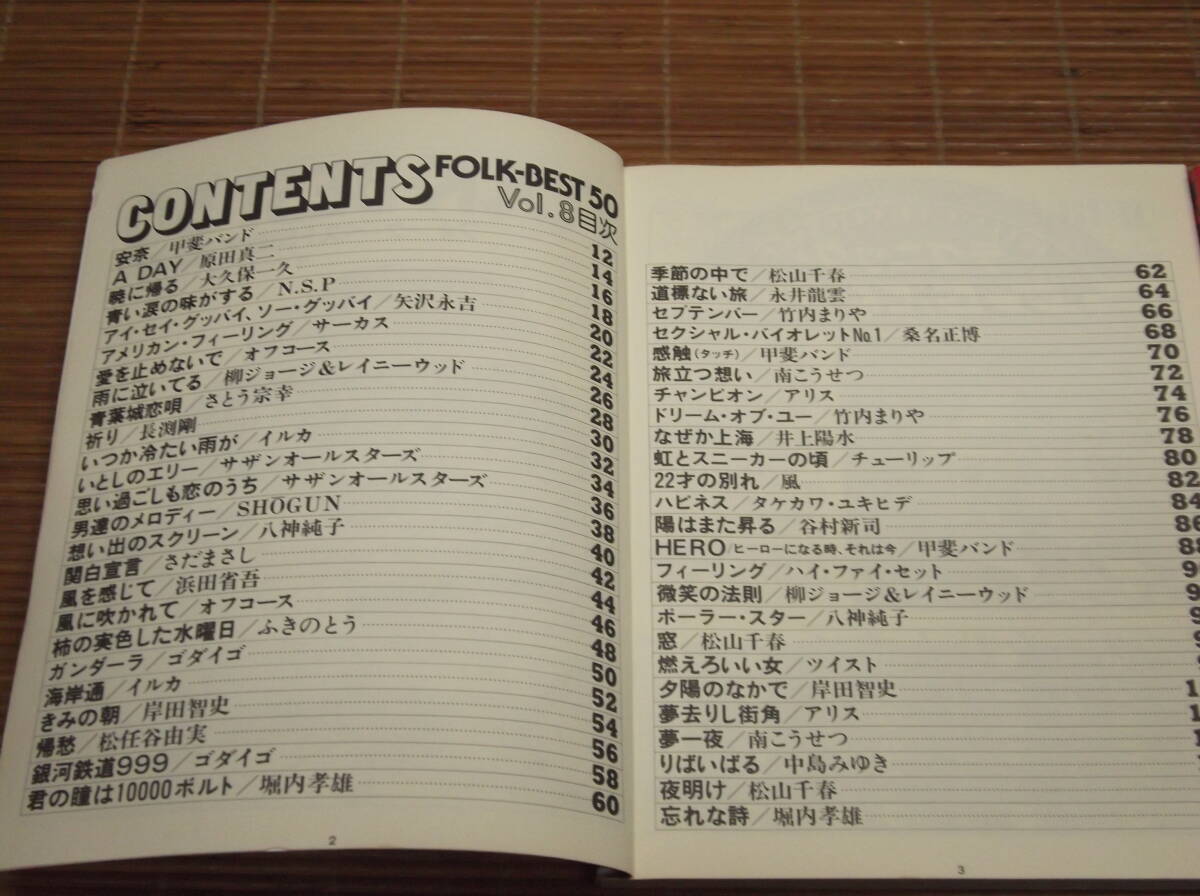 CONTENTS FOLK-BEST 50
Vol.8目次
安奈／甲斐バンド 12
A DAY／原田真二 14
暁に帰る／大久保一久 16
青い涙の味がする／N.S.P 18
アイ・セイ・グッバイ、ソー・グッバイ／矢沢永吉 20
アメリカン・フィーリング／サーカス 22
愛を止めないで／オフコース 24
雨に泣いてる／柳ジョージ&レイニーウッド 26
青葉城恋唄／さとう宗幸 28
祈り／長渕剛 30
いつか冷たい雨が／イルカ 32
いとしのエリー／サザンオールスターズ 34
思い過ごしも恋のうち／サザンオールスターズ 36
男達のメロディー／SHŌGUN 38
想い出のスクリーン／八神純子 40
関白宣言／さだまさし 42
風を感じて／浜田省吾 44
風に吹かれて／オフコース 46
柿の実色した水曜日／ふきのとう 48
ガンダーラ／ゴダイゴ 50
海岸通／イルカ 52
きみの朝／岸田智史 54
帰愁／松任谷由実 56
銀河鉄道999／ゴダイゴ 58
君の瞳は10000ボルト／堀内孝雄 60
2
季節の中で／松山千春 62
道標ない旅／永井龍雲 64
セプテンバー／竹内まりや 66
セクシャル・バイオレットNo.1／桑名正博 68
感触(タッチ)／甲斐バンド 70
旅立つ想い／南こうせつ 72
チャンピオン／アリス 74
ドリーム・オブ・ユー／竹内まりや 76
なぜか上海／井上陽水 78
虹とスニーカーの頃／チューリップ 80
22才の別れ／風 82
ハピネス／タケカワ・ユキヒデ 84
陽はまた昇る／谷村新司 86
HERO/ヒーローになる時、それは今／甲斐バンド 88
フィーリング／ハイ・ファイ・セット
微笑の法則／柳ジョージ&レイニーウッド
ポーラー・スター／八神純子
窓／松山千春
燃えろいい女／ツイスト
夕陽のなかで／岸田智史
夢去りし街角／アリス
夢一夜／南こうせつ
りばいばる／中島みゆき
夜明け／松山千春
忘れな詩／堀内孝雄
3